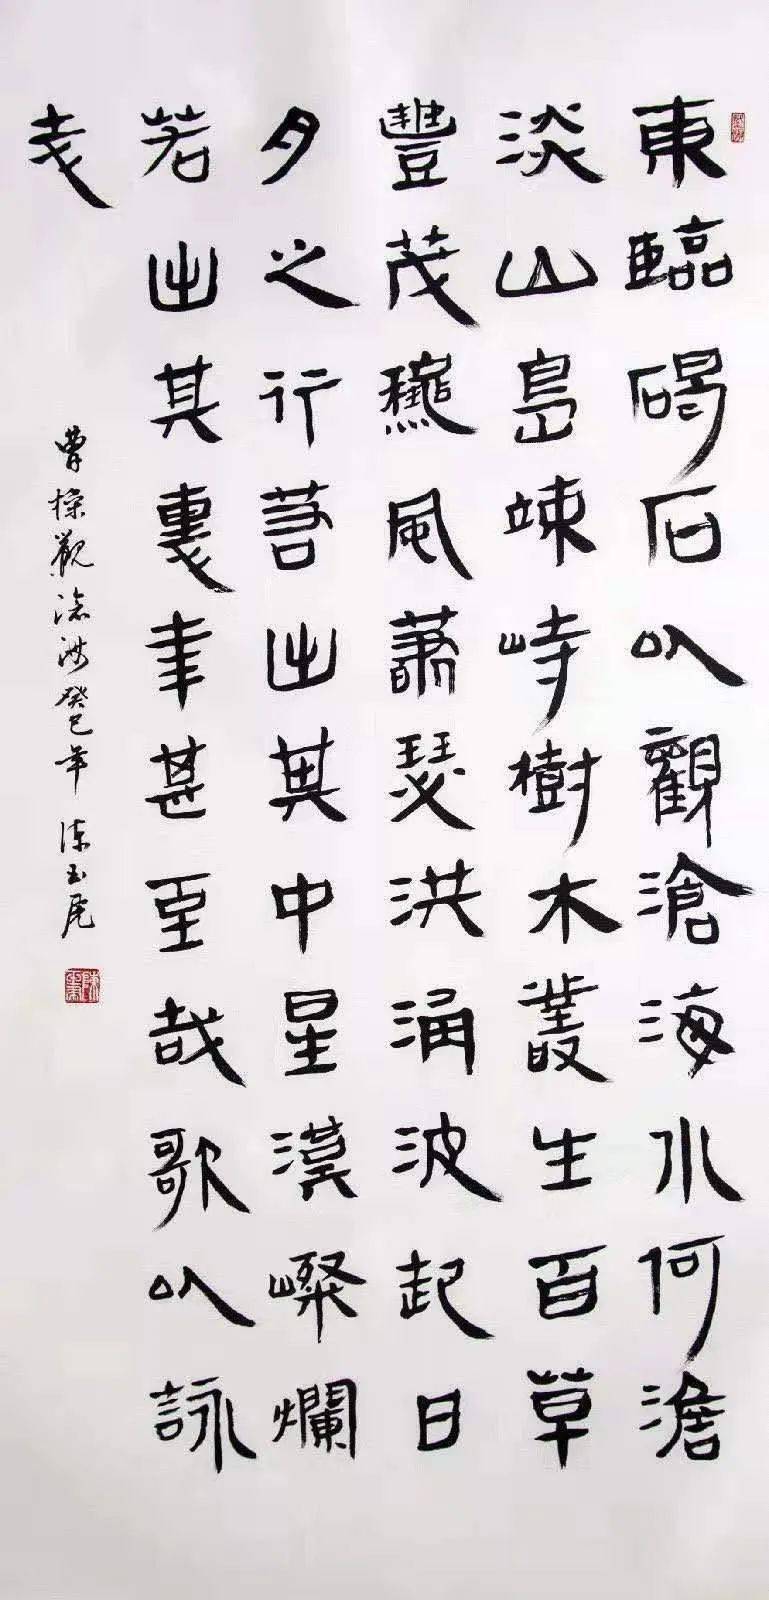 東臨碣石以觀滄海水何澹
淡山島竦峙樹木叢生百草
豐茂龝風蕭瑟洪涌波起日
月之行若出其中星漢燦爛
若出其裏幸甚至哉歌以詠
志
曹操觀滄海癸巳年 陈玉